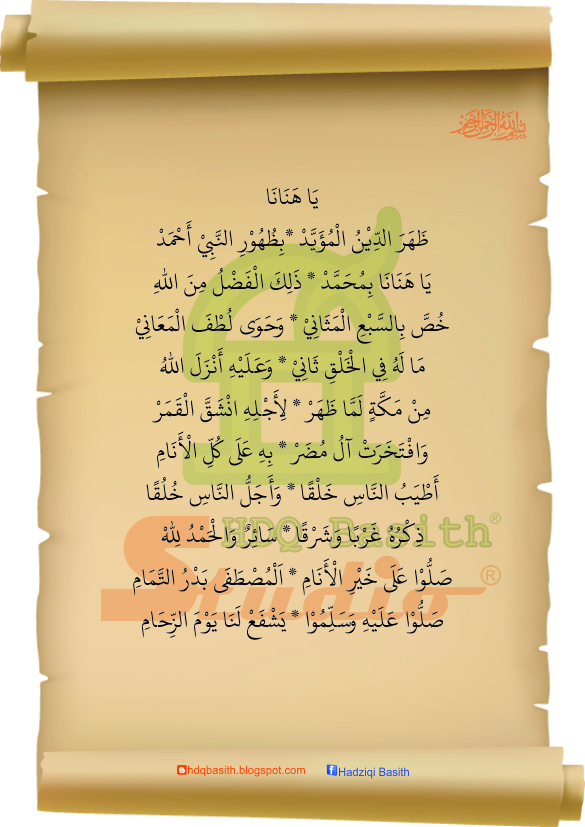 بسم الله الرحمن الرحيم
يَا هَنَانَا
ظَهَرَ الدِّيْنُ الْمُؤَيَّدْ * بِظُهُوْرِ النَّبِيْ أَحْمَدْ
يَا هَنَانَا بِمُحَمَّدْ * ذَلِكَ الْفَضْلُ مِنَ اللهِ
خُصَّ بِالسَّبْعِ الْمَثَانِيْ * وَحَوَى لُطْفَ الْمَعَانِيْ
مَا لَهُ فِي الْخَلْقِ ثَانِيْ * وَعَلَيْهِ أَنْزَلَ اللهُ
مِنْ مَكَّةٍ لَمَّا ظَهَرْ * لِأَجْلِهِ انْشَقَّ الْقَمَرْ
وَافْتَخَرَتْ آلُ مُضَرْ * بِهِ عَلَى كُلِّ الْأَنَامِ
أَطْيَبُ النَّاسِ خَلْقًا * وَأَجَلُّ النَّاسِ خُلُقًا
ذِكْرُهُ غَرْبًا وَشَرْقًا * سَائِرٌ وَالْحَمْدُ لِلّٰهْ
صَلُّوْا عَلَى خَيْرِ الْأَنَامِ * اَلْمُصْطَفَى بَدْرُ التَّمَامِ
صَلُّوْا عَلَيْهِ وَسَلِّمُوْا * يَشْفَعْ لَنَا يَوْمَ الزِّحَامِ
HDQ-Basith®
Studio®
hdqbasith.blogspot.com Hadziqi Basith